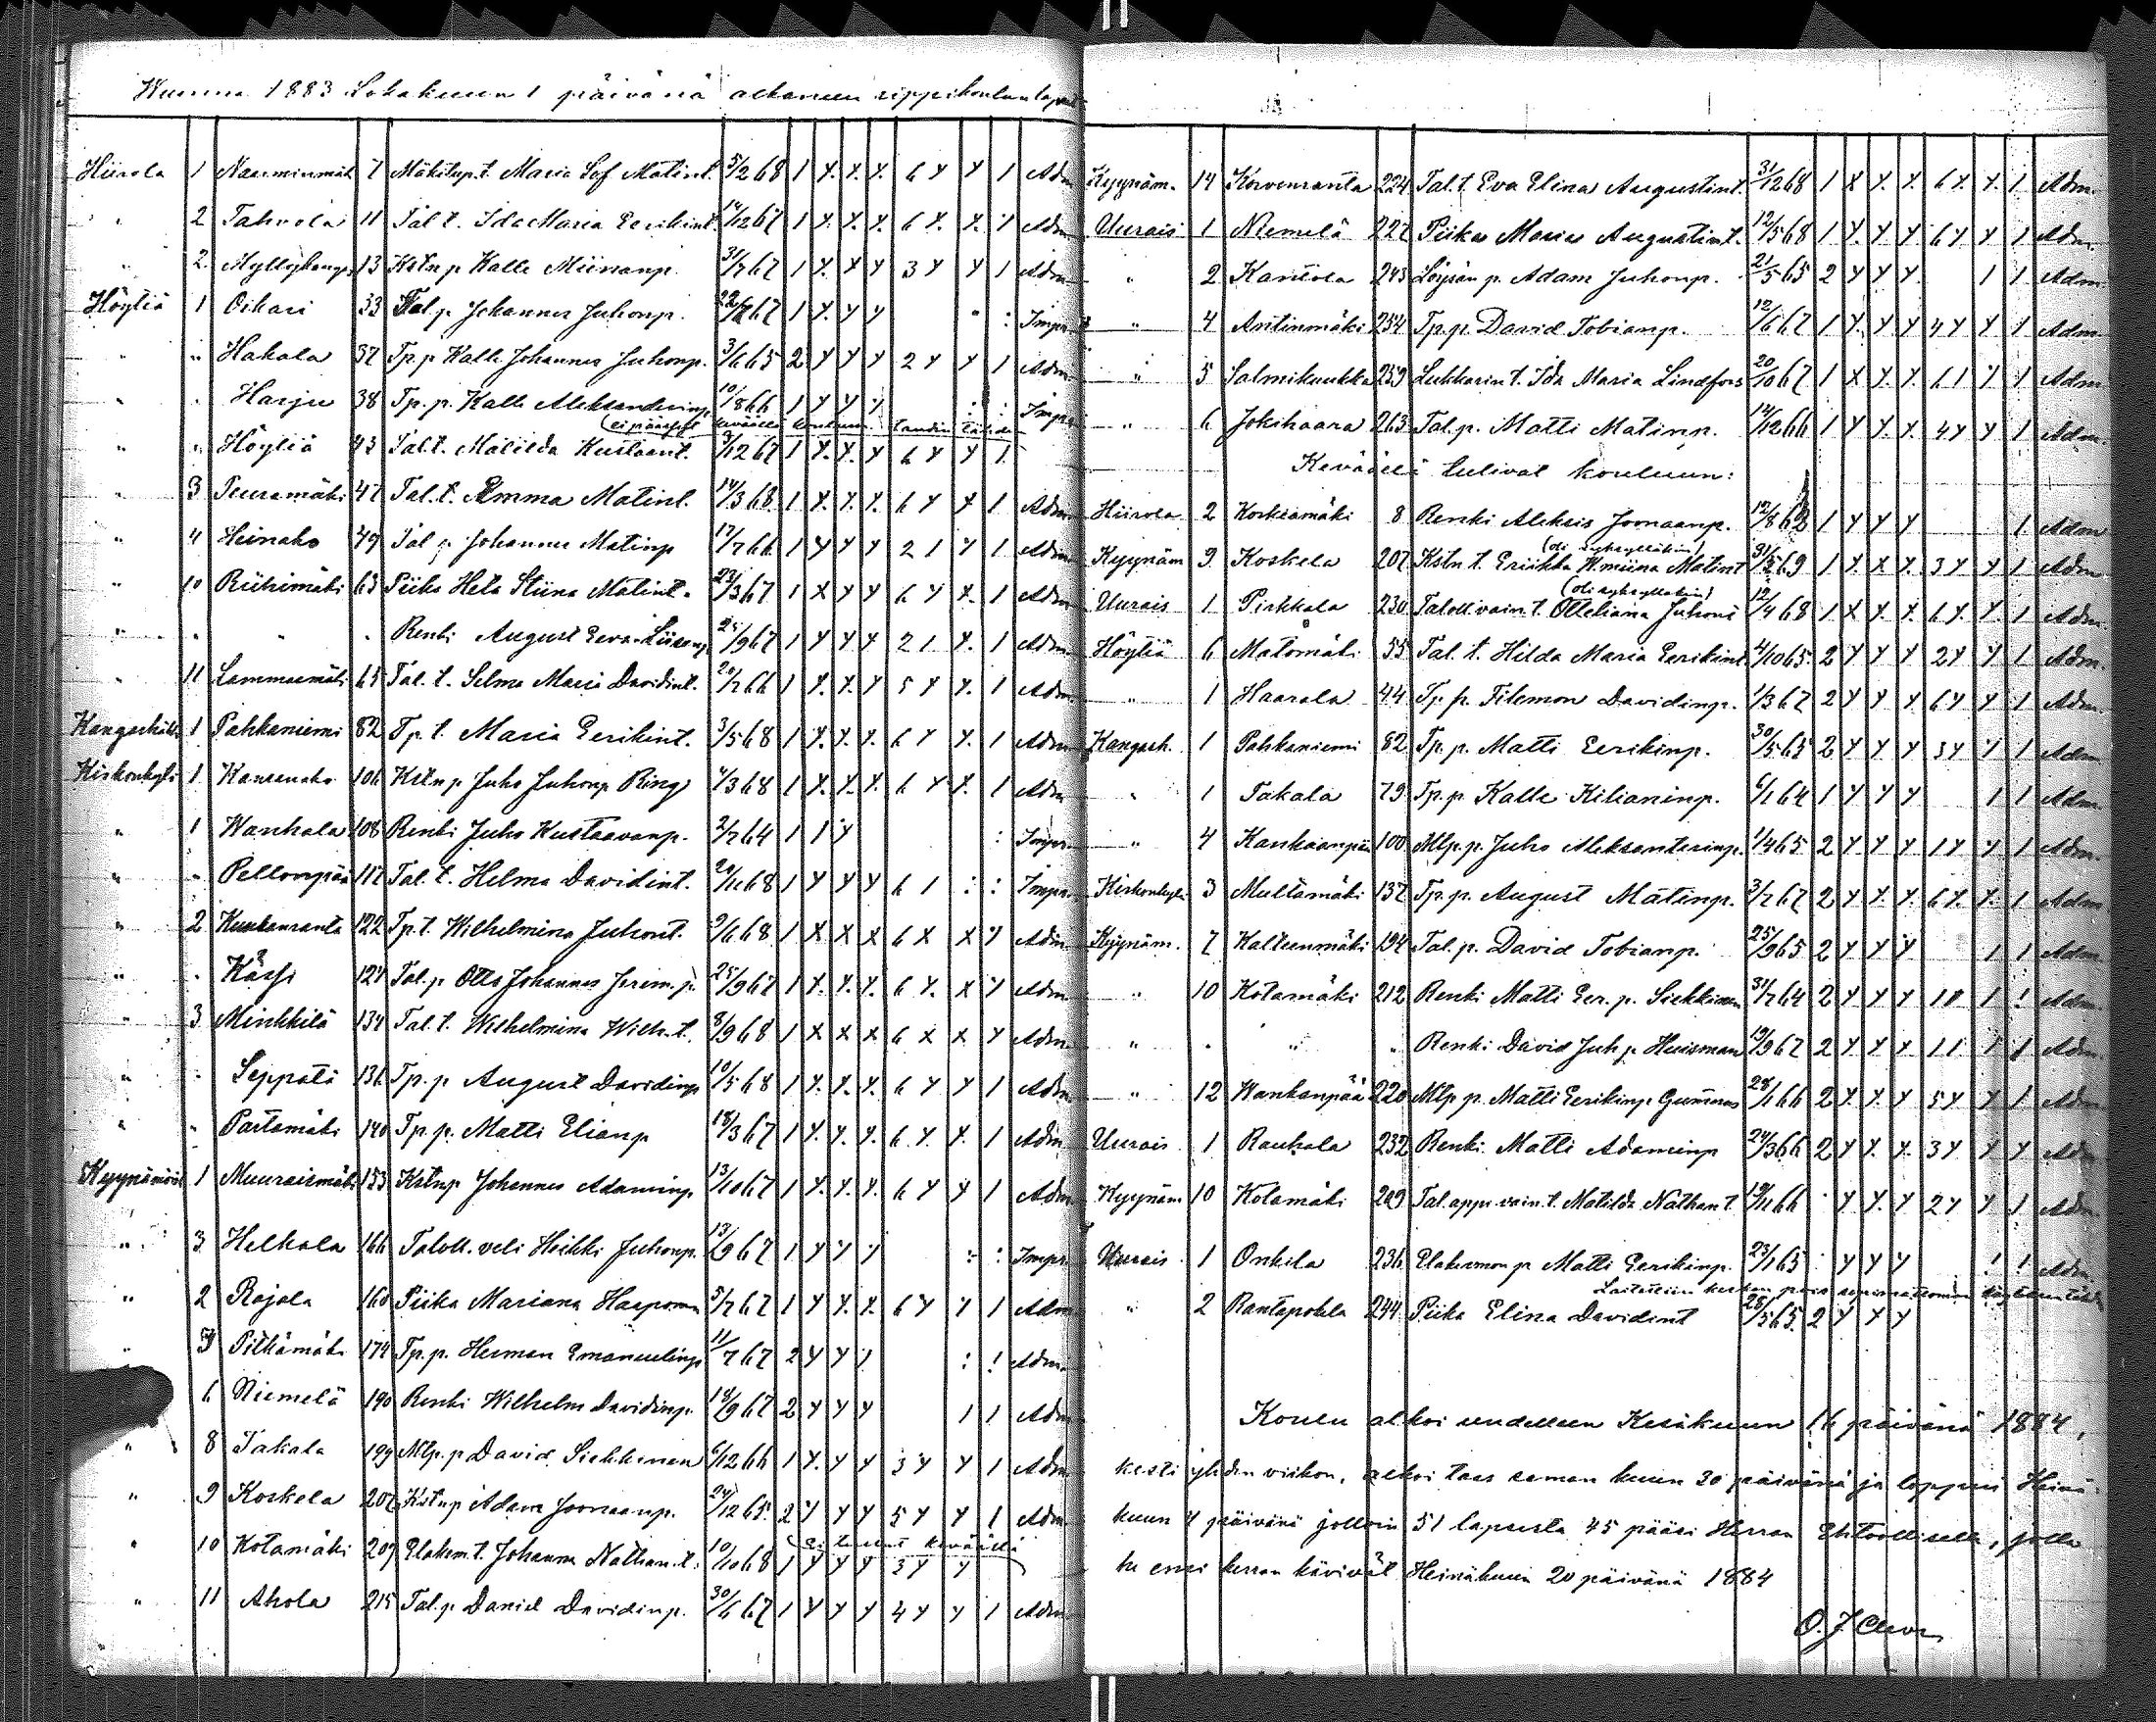 1883 Lokakuun 1 päivänä alkaneen rippikoulun
Hiirola 1 7 Mökitup.t. Maria Sof. Matint. 5/2 68 1 Y. Y. Y. 6 Y Y 1 Adm
" 2 Tahvola 11 Tal. t. Ida Maria Eerikint. 14/12 67 1 Y. Y. Y. 6 Y. Y. Y Adm
" 2 13 Kstn p Kalle Miinanp. 31/7 67 1 Y. Y Y 3 Y Y 1 Adm
Höytiä 1 Oikari 33 Tal.p Johannes Juhonp. 67 1 Y. Y Y " : Impr.
" " Hakala 37 Tp.p Kalle Johannes Juhonp. 3/6 65 2 Y Y Y 2 Y Y 1 Adm
" . Harju 38 Tp.p. Kalle Aleksanderinp. 10/8 66 1 Y Y Y : : Impr
" " Höytiä 43 Tal.t. Matilda Kustaant. 3/12 67 1 Y. Y. Y 6 Y Y 1
" 3 Peuramäki 47 Tal. t. Emma Matint. 14/3 68 1 Y. Y. Y. 6 Y Y 1 Adm
" 4 Heinaho 49 Tal p Johannes Matinp 17/7 66 1 Y Y Y 2 1 Y 1 Adm
" 10 Riihimäki 63 Piika Heta Stiina Matint. 23/3 67 1 X Y Y 6 Y Y. 1 Adm
" . " . Renki August Eeva-Liisanp 25/9 67 1 Y Y Y 2 1 Y. 1 Adm
" 11 Lammasmäki 65 Tal. t. Selma Maria Davidint. 20/7 66 1 Y. Y. Y 5 Y Y. 1 Adm
Kangashäk. 1 Pahkaniemi 82 Tp. t. Maria Eerikint. 3/5 68 1 Y. Y. Y. 6 Y Y. 1 Adm
Kirkonkyli 1 Kansanaho 106 Kstn p Juho Juhonp Ring 4/3 68 1 Y. Y. Y. 6 Y Y. 1 Adm
" 1 Wanhala 108 Renki Juho Kustaavanp. 2/7 64 1 1 Y : Impr.
" " Pellonpää 117 Tal. t. Helma Davidint. 68 1 Y Y Y 6 1 : : Impr.
" 2 Kuukanranta 122 Tp.t. Wilhelmina Juhont. 2/6 68 1 X X X 6 X X Y Adm
" . Kässi 127 Tal.p Otto Johannes Jerem.p. 25/9 67 1 Y. Y. Y. 6 Y. X Y Adm
" 3 Minkkilä 134 Tal. t. Wilhelmina Wilh.t. 8/9 68 1 X X X 6 X X Y Adm
" . Seppälä 136 Tp.p August Davidinp 10/5 68 1 Y. Y. Y. 6 Y Y 1 Adm
" " Paitamäki 140 Tp.p. Matti Elianp 18/3 67 1 Y. Y. Y. 6 Y. Y. 1 Adm
Kyynämöis 1 Muuraismäki 153 Kstnp Johannes Adaminp. 13/10 67 1 Y. Y. Y. 6 Y Y 1 Adm
" 3 Helkala 166 Taloll. veli Heikki Juhonp. 13/9 67 1 Y Y Y : : Impr.
" 2 Rajala 160 Piika Mariana 5/7 67 1 Y Y. Y. 6 Y Y 1 Adm
" Pitkämäki 174 Tp.p. Herman Emanuelinp 11/7 67 2 Y Y 1 : ! Adm
6 Niemelä 190 Renki Wilhelm Davidinp. 18/9 67 2 Y Y Y 1 1 Adm
" 8 Takala 199 Mlp.p David Siekkinen 6/12 66 1 Y. Y Y 3 Y Y 1 Adm
" 9 Koskela 207 Kstnp Adam Joonaanp. 24/12 65 2 Y Y Y 5 Y Y 1 Adm
Ei tullut keväällä
" 10 Kotamäki 209 Elakem.t. Johanna Nathan.t. 10/10 68 1 Y Y Y 3 Y Y
" 11 Ahola 215 Tal.p Daniel Davidinp. 30/6 67 1 Y Y Y 4 Y Y 1 Adm
Kyynäm. 14 Korvenranta 224 Tal.t. Eva Elina Augustint. 31/12 68 1 X Y. Y. 6 Y. Y. 1 Adm.
Uurais 1 Niemelä 227 Piika Maria Augustint. 12/5 68 1 Y. Y. Y. 6 Y Y 1 Adm.
" 2 Kantola 243 Löysän p. Adam Juhonp. 21/5 65 2 Y Y Y 1 1 Adm.
" 4 Antinmäki 254 Tp.p. David Tobianp. 12/6 67 1 Y. Y Y 4 Y Y 1 Adm.
" 5 Salmikuukka 259 Lukkarin t. Ida Maria Lindfors 20/10 67 1 X Y. Y. 6 1 Y Y Adm
" 6 Jokihaara 263 Tal.p. Matti Matinp. 14/12 66 1 Y Y. Y. 4 Y Y 1 Adm.
Keväällä tulivat kouluun:
Hiirola 2 Korkeamäki 8 Renki Aleksis Joonaanp. 12/8 1 Y Y Y 1 Adm
(oli syksylläkin)
Kyynäm 9 Koskela 207 Kstn t. Eriikka Matint 69 1 Y. X. Y. 3 Y Y 1 Adm
(oli syksylläkin)
Uurais 1 Pirkkala 230 Taloll.vain.t. Otteliana 12/4 68 1 X. Y. Y. 6 Y. Y. 1 Adm
Höytiä 6 Matomäki 55 Tal. t. Hilda Maria Eerikint 4/10 65 2 Y Y Y 2 Y Y 1 Adm.
" 1 Haarala 44 Tp.p. Filemon Davidinp. 1/3 67 2 Y Y Y 6 Y Y 1 Adm.
Kangash. 1 Pahkaniemi 82 Tp.p. Matti Eerikinp. 30/5 65 2 Y Y Y 3 Y Y 1 Adm
" 1 Takala 79 Tp.p. Kalle Kilianinp. 6/1 64 1 Y Y Y 1 1 Adm
" 4 Kankaanpää 100 Mlp.p. Juho Aleksanterinp. 1/4 65 2 Y. Y. Y. 1 Y Y 1 Adm.
Kirkonkyli 3 Multamäki 137 Tp.p. August Matinp. 3/7 67 2 Y. Y. Y. 6 Y. Y. 1 Adm
Kyynäm. 7 Kalteenmäki 194 Tal.p. David Tobianp. 25/9 65 2 Y Y Y 1 1 Adm.
" 10 Kotamäki 212 Renki Matti Eer. p. Siekkinen 31/7 64 2 Y Y Y 1 ! Adm.
" . " " Renki David Juh p. Huisman 19/9 67 2 Y. Y. Y 1 1 1 1 Adm.
" 12 Kankanpää 220 Mlp p. Matti Eerikinp. Gummerus 28/1 66 2 Y. Y. Y. 5 Y Y 1 Adm
Uurais 1 Rauhala 232 Renki Matti Adaminp 24/3 66 2 Y Y. Y. 3 Y Y Y Adm
Kyynäm 10 Kotamäki 209 Tal.appr.vain.t. Matilda Nathan t. 66 . Y. Y. Y 2 Y Y 1 Adm
Uurais 1 Onkila 236 Elakemon p Matti Eerikinp. 23/1 65 . Y Y Y ! ! Adm
Laitettiin kerran pois
" 2 Rantapohla 244 Piika Elina Davidint 28/5 65 2 Y Y Y
Koulu alkoi uudelleen Kesäkuun 16 päivänä 1884,
kesti yhden viikon, alkoi taas saman kuun 30 päivänä ja loppui Heinä-
kuun 4 päivänä jolloin 51 lapsesta 45 pääsi Herran Ehtoolliselle, jolla
he ensi kerran kävivät Heinäkuun 20 päivänä 1884
O. J.